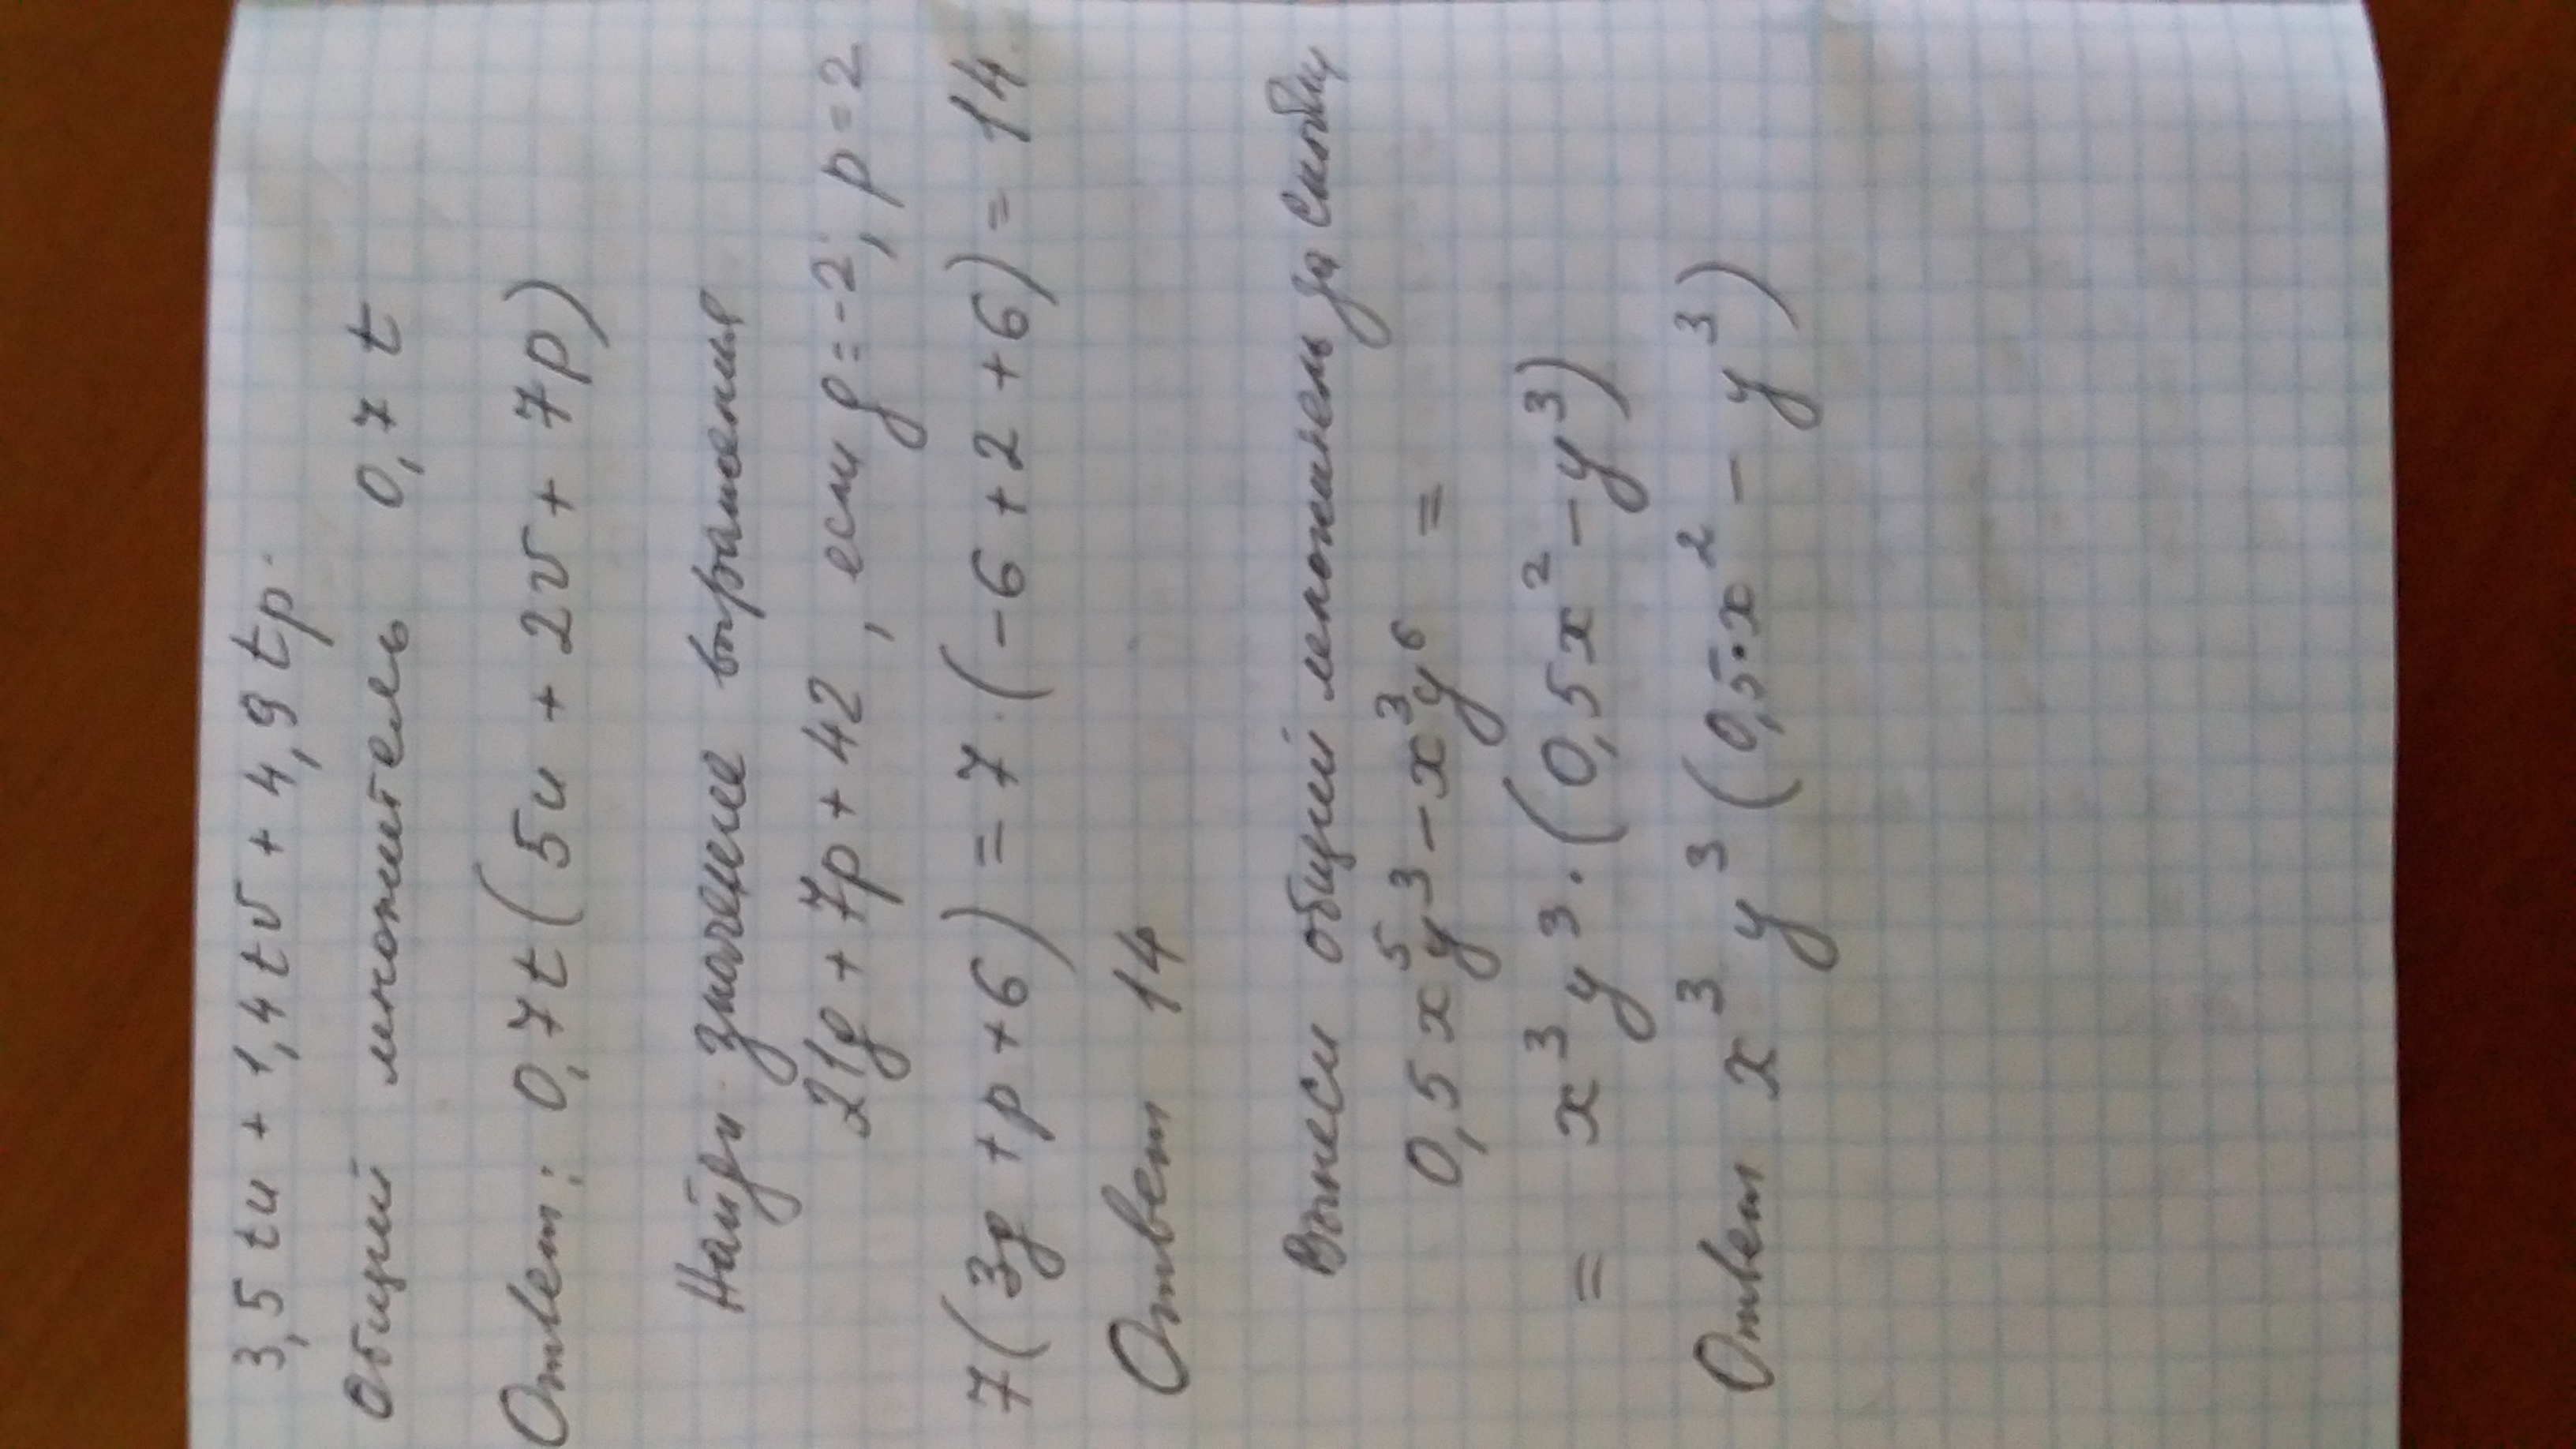 3,5 tu + 1,4 tv + 4,9 tp.
Общий множитель 0,7 t
Ответ: 0,7t (5u + 2v + 7p)
Найди значение выражения
21g + 7p + 42, если g = -2, p = 2
7(3g + p + 6) = 7·(-6 + 2 + 6) = 14.
Ответ 14
Вынеси общий множитель за скобки
0,5 x⁵y³ - x³y⁶ =
= x³y³·(0,5x² - y³)
Ответ x³y³(0,5·x² - y³)